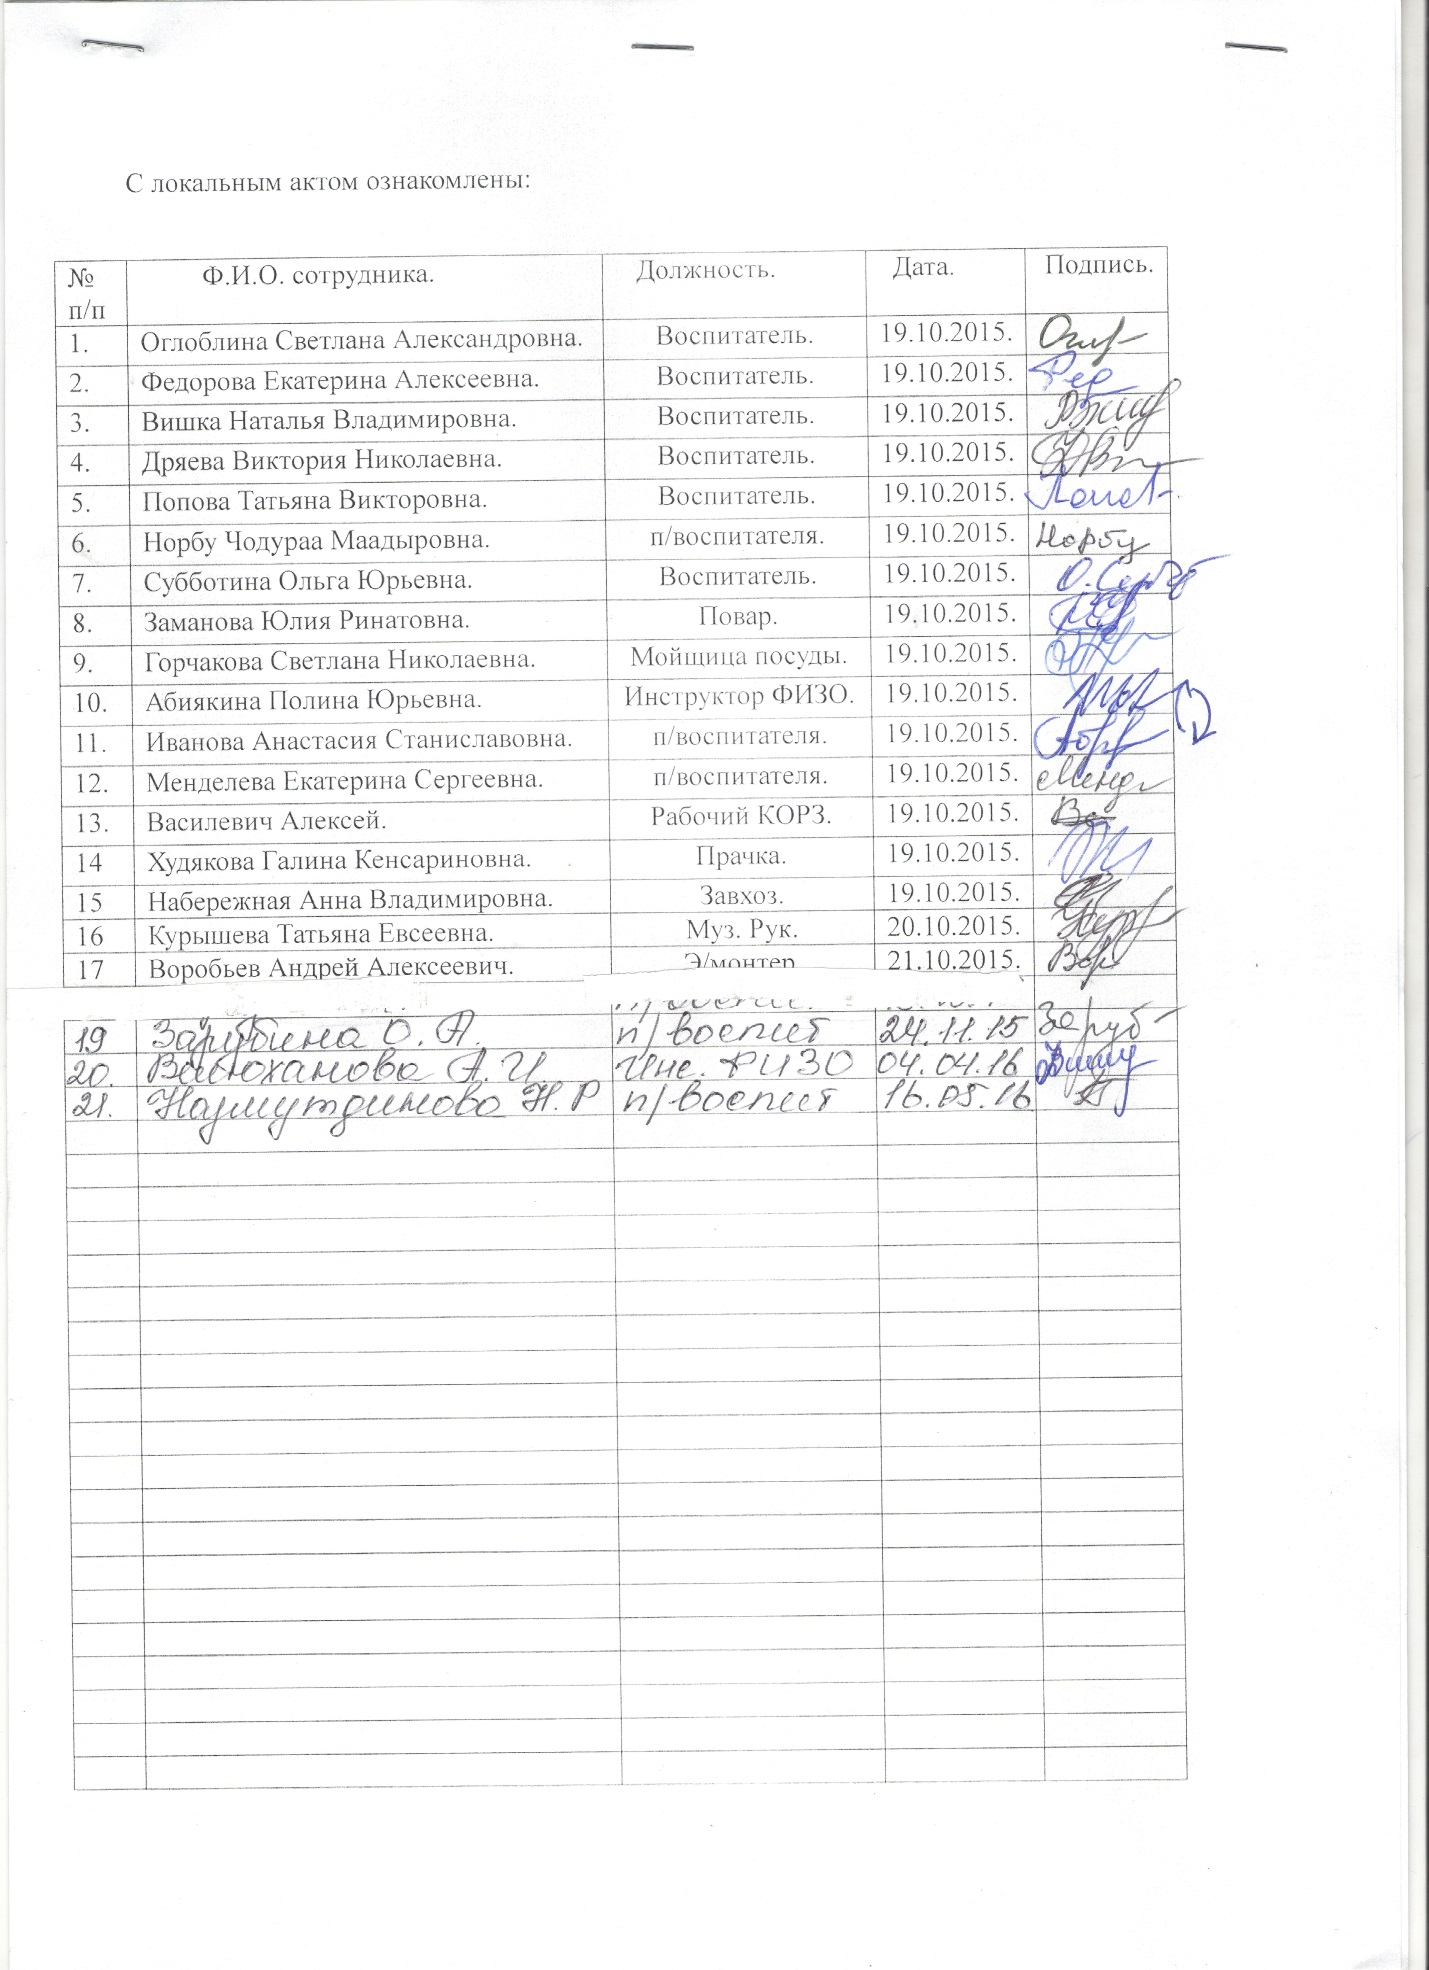 С локальным актом ознакомлены:
№ п/п Ф.И.О. сотрудника. Должность. Дата. Подпись.
1. Оглоблина Светлана Александровна. Воспитатель. 19.10.2015.
2. Федорова Екатерина Алексеевна. Воспитатель. 19.10.2015. Фед
3. Вишка Наталья Владимировна. Воспитатель. 19.10.2015.
4. Дряева Виктория Николаевна. Воспитатель. 19.10.2015.
5. Попова Татьяна Викторовна. Воспитатель. 19.10.2015.
6. Норбу Чодураа Маадыровна. п/воспитателя. 19.10.2015. Норбу
7. Субботина Ольга Юрьевна. Воспитатель. 19.10.2015.
8. Заманова Юлия Ринатовна. Повар. 19.10.2015.
9. Горчакова Светлана Николаевна. Мойщица посуды. 19.10.2015.
10. Абиякина Полина Юрьевна. Инструктор ФИЗО. 19.10.2015.
11. Иванова Анастасия Станиславовна. п/воспитателя. 19.10.2015.
12. Менделева Екатерина Сергеевна. п/воспитателя. 19.10.2015. Менд
13. Василевич Алексей. Рабочий КОРЗ. 19.10.2015.
14 Худякова Галина Кенсариновна. Прачка. 19.10.2015.
15 Набережная Анна Владимировна. Завхоз. 19.10.2015.
16 Курышева Татьяна Евсеевна. Муз. Рук. 20.10.2015.
17 Воробьев Андрей Алексеевич. Э/монтер 21.10.2015. Вор
19 Зарубина О. А. п/воспит 24.11.15 Заруб
20. А. И Инс. ФИЗО 04.04.16
21. Назмутдинова Н. Р п/воспит 16.05.16